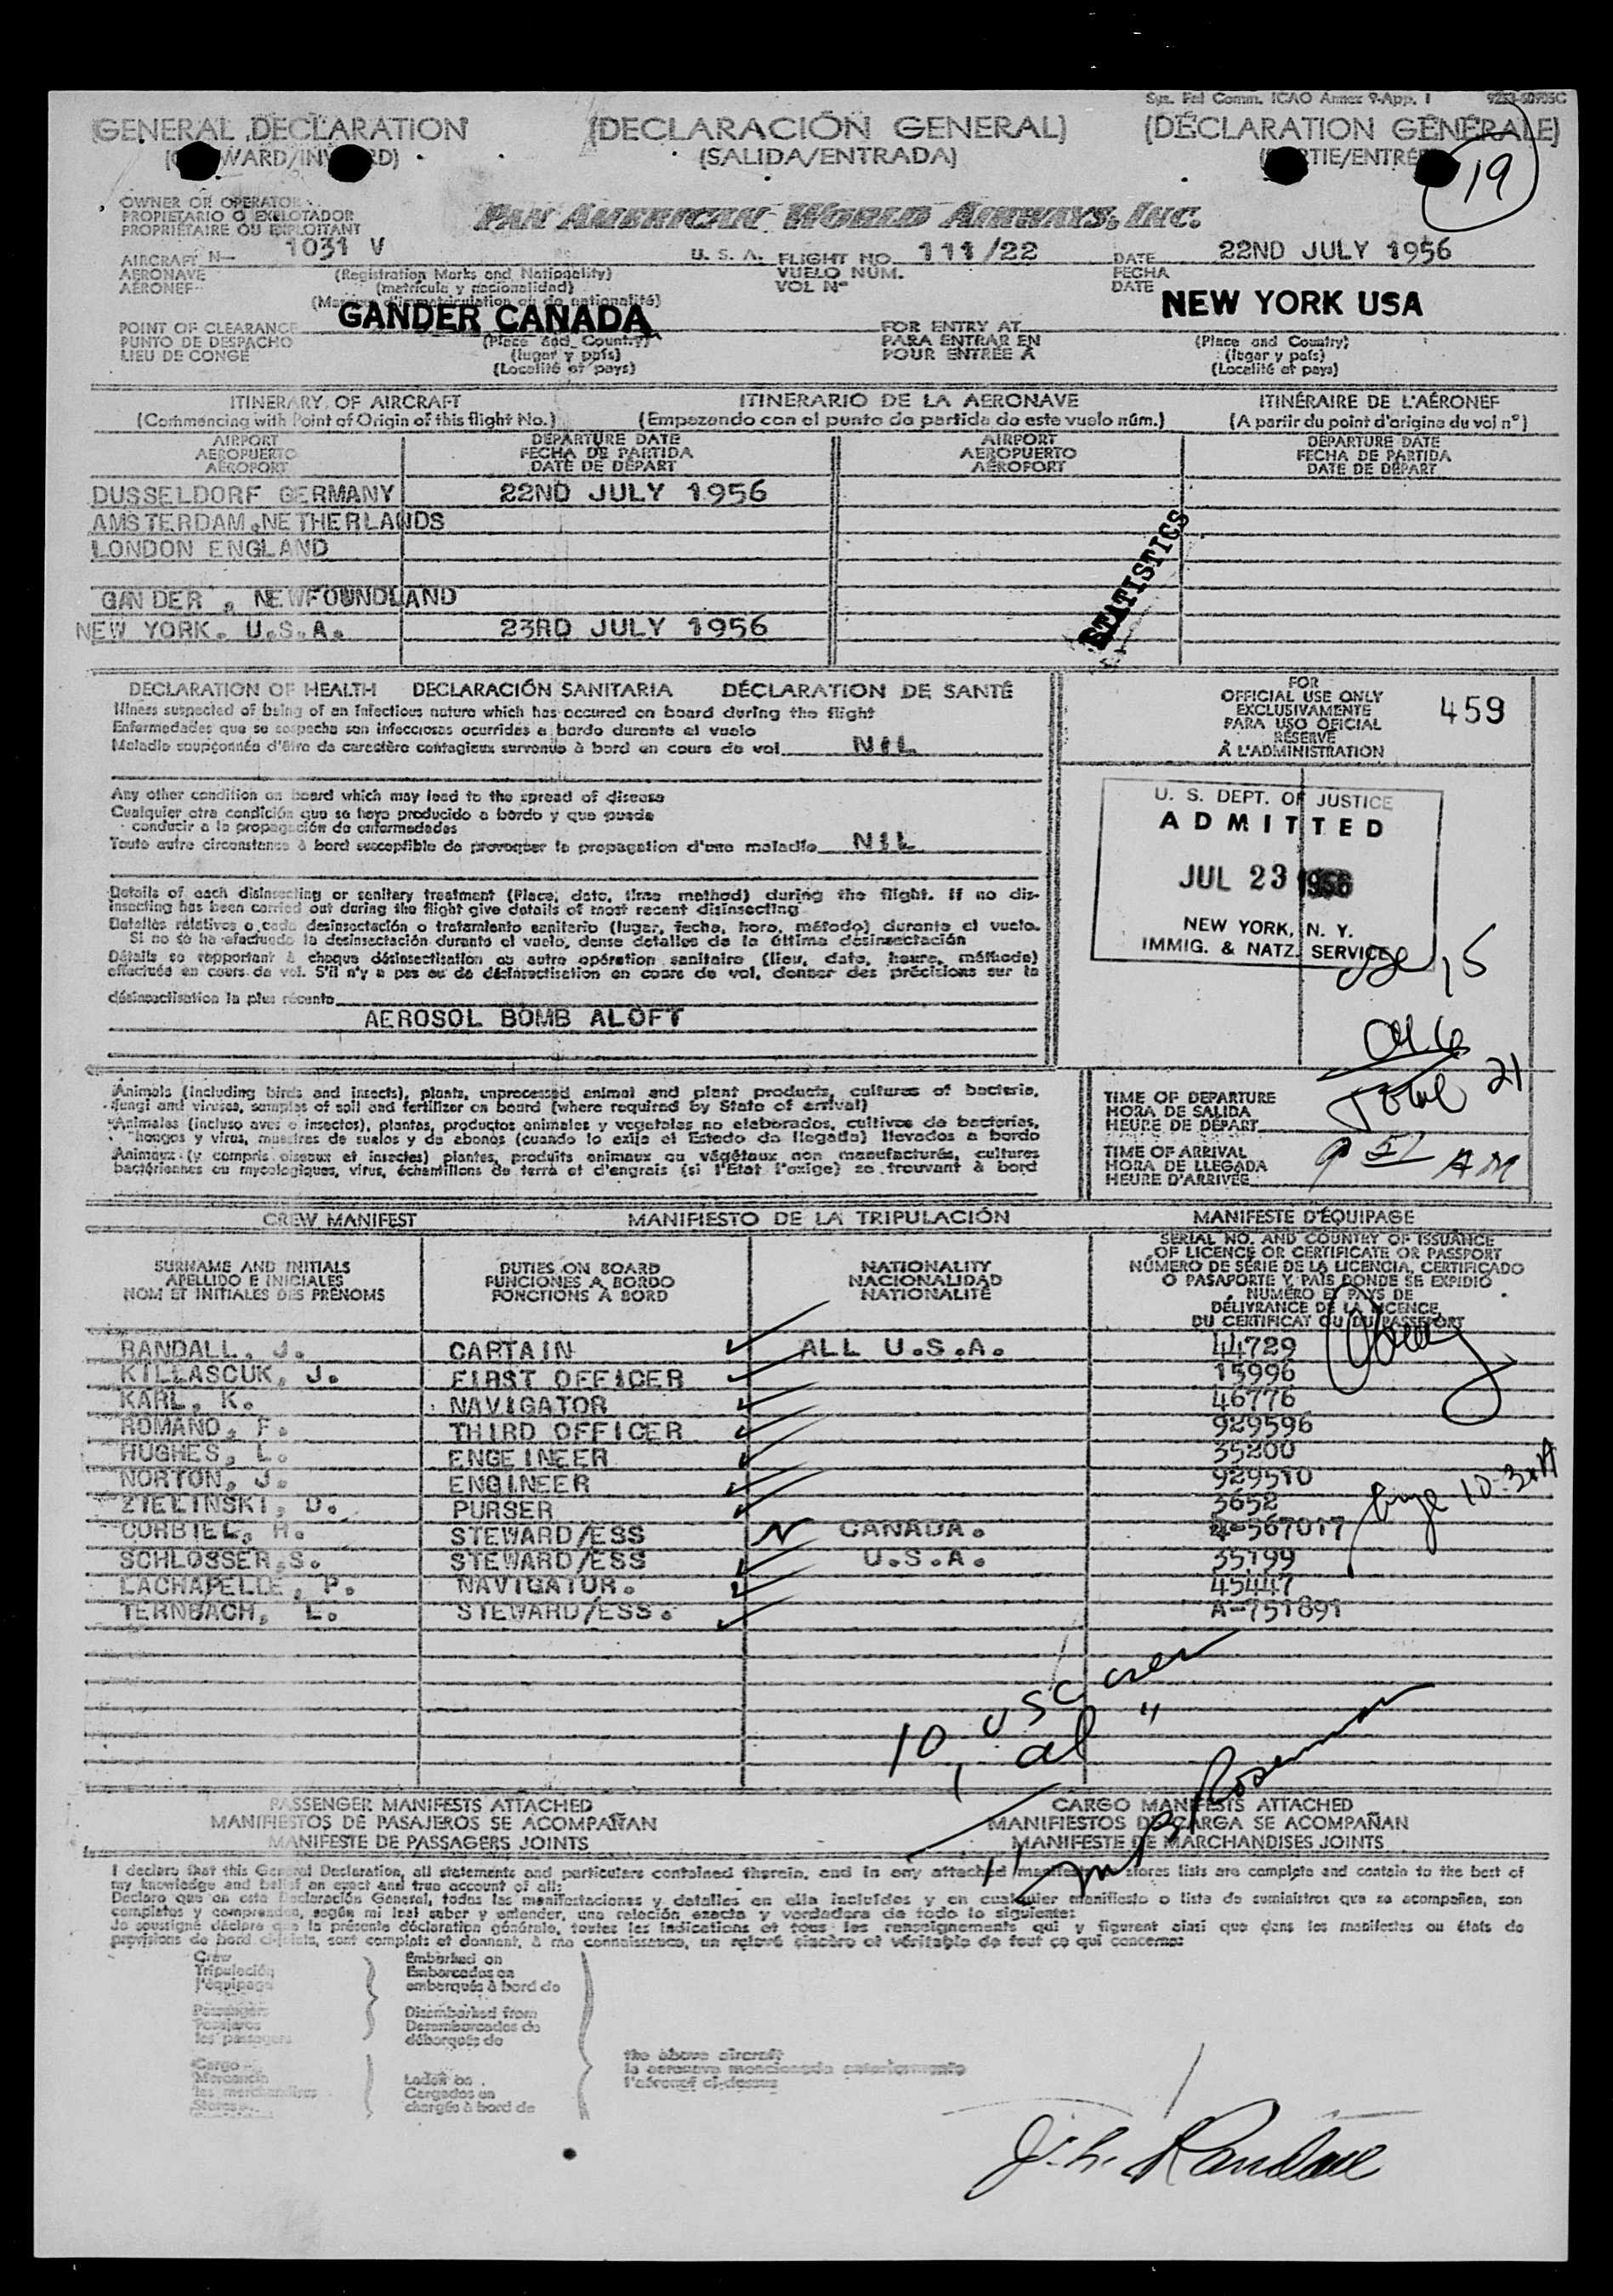 Sys. Fal Comm. ICAO Annex 9-App. I
GENERAL DECLARATION (DECLARACIÓN GENERAL) (DÉCLARATION GÉNÉRALE)
(SALIDA/ENTRADA)
19
OWNER OR OPERATOR
PROPIETARIO O EXPLOTADOR
PROPRIÉTAIRE OU EXPLOITANT
PAN AMERICAN WORLD AIRWAYS, INC.
AIRCRAFT N— 1031 V U. S. A. FLIGHT NO. 111/22 DATE 22ND JULY 1956
AERONAVE (Registration Marks and Nationality) VUELO NÚM. FECHA
AÉRONEF (matrícula y nacionalidad) VOL Nº DATE
(Marques d'immatriculation ou de nationalité)
POINT OF CLEARANCE GANDER CANADA FOR ENTRY AT NEW YORK USA
PUNTO DE DESPACHO (Place and Country) PARA ENTRAR EN (Place and Country)
LIEU DE CONGÉ (lugar y país) POUR ENTRÉE À (lugar y país)
(Localité et pays) (Localité et pays)
ITINERARY OF AIRCRAFT ITINERARIO DE LA AERONAVE ITINÉRAIRE DE L'AÉRONEF
(Commencing with Point of Origin of this flight No.) (Empezando con el punto de partida de este vuelo núm.) (A partir du point d'origine du vol nº)
AIRPORT DEPARTURE DATE AIRPORT DEPARTURE DATE
AEROPUERTO FECHA DE PARTIDA AEROPUERTO FECHA DE PARTIDA
AÉROPORT DATE DE DÉPART AÉROPORT DATE DE DÉPART
DUSSELDORF GERMANY 22ND JULY 1956
AMSTERDAM,NETHERLANDS
LONDON ENGLAND
STATISTICS
GANDER , NEWFOUNDLAND
NEW YORK. U.S.A. 23RD JULY 1956
DECLARATION OF HEALTH DECLARACIÓN SANITARIA DÉCLARATION DE SANTÉ
Illness suspected of being of an infectious nature which has occured on board during the flight
Enfermedades que se sospecha son infecciosas ocurridas a bordo durante el vuelo
Maladie soupçonnée d'être de caractère contagieux survenue à bord en cours de vol NIL
Any other condition on board which may lead to the spread of disease
Cualquier otra condición que se haya producido a bordo y que pueda
conducir a la propagación de enfermedades
Toute autre circonstance à bord susceptible de provoquer la propagation d'une maladie NIL
Details of each disinsecting or sanitary treatment (Place, date, time method) during the flight. If no dis-
insecting has been carried out during the flight give details of most recent disinsecting
Detalles relativos a cada desinsectación o tratamiento sanitario (lugar, fecha, hora, método) durante el vuelo.
Si no se ha efectuado la desinsectación durante el vuelo, dense detalles de la última desinsectación
Détails se rapportant à chaque désinsectisation ou autre opération sanitaire (lieu, date, heure, méthode)
effectuée en cours de vol. S'il n'y a pas eu de désinsectisation en cours de vol, donner des précisions sur la
désinsectisation la plus récente
AEROSOL BOMB ALOFT
FOR
OFFICIAL USE ONLY
EXCLUSIVAMENTE
PARA USO OFICIAL
RÉSERVÉ
À L'ADMINISTRATION
459
U. S. DEPT. OF JUSTICE
ADMITTED
JUL 23 1956
NEW YORK, N. Y.
IMMIG. & NATZ. SERVICE
15
Total 21
Animals (including birds and insects), plants, unprocessed animal and plant products, cultures of bacteria,
fungi and viruses, samples of soil and fertilizer on board (where required by State of arrival)
Animales (incluso aves e insectos), plantas, productos animales y vegetales no elaborados, cultivos de bacterias,
hongos y virus, muestras de suelos y de abonos (cuando lo exija el Estado de llegada) llevados a bordo
Animaux (y compris oiseaux et insectes) plantes, produits animaux ou végétaux non manufacturés, cultures
bactériennes ou mycologiques, virus, échantillons de terre et d'engrais (si l'État l'exige) se trouvant à bord
TIME OF DEPARTURE
HORA DE SALIDA
HEURE DE DÉPART
TIME OF ARRIVAL
HORA DE LLEGADA
HEURE D'ARRIVÉE
9 51 AM
CREW MANIFEST MANIFIESTO DE LA TRIPULACIÓN MANIFESTE D'ÉQUIPAGE
SURNAME AND INITIALS
APELLIDO E INICIALES
NOM ET INITIALES DES PRÉNOMS
DUTIES ON BOARD
FUNCIONES A BORDO
FONCTIONS À BORD
NATIONALITY
NACIONALIDAD
NATIONALITÉ
SERIAL NO. AND COUNTRY OF ISSUANCE
OF LICENCE OR CERTIFICATE OR PASSPORT
NÚMERO DE SERIE DE LA LICENCIA, CERTIFICADO
O PASAPORTE Y PAÍS DONDE SE EXPIDIÓ
NUMÉRO ET PAYS DE
DÉLIVRANCE DE LA LICENCE,
DU CERTIFICAT OU DU PASSEPORT
RANDALL, J. CAPTAIN ALL U.S.A. 44729
KILLASCUK, J. FIRST OFFICER 15996
KARL, K. NAVIGATOR 46776
ROMANO, F. THIRD OFFICER 929596
HUGHES, L. ENGEINEER 35200
NORTON, J. ENGINEER 929510
ZIELINSKI, D. PURSER 3652
CORBIEL, H. STEWARD/ESS CANADA. 567017
SCHLOSSER,S. STEWARD/ESS U.S.A. 35199
LACHAPELLE, P. NAVIGATOR. 45447
TERNBACH, L. STEWARD/ESS. A-751891
10 usc crew
1 al "
PASSENGER MANIFESTS ATTACHED CARGO MANIFESTS ATTACHED
MANIFIESTOS DE PASAJEROS SE ACOMPAÑAN MANIFIESTOS DE CARGA SE ACOMPAÑAN
MANIFESTE DE PASSAGERS JOINTS MANIFESTE DE MARCHANDISES JOINTS
I declare that this General Declaration, all statements and particulars contained therein, and in any attached manifests stores lists are complete and contain to the best of
my knowledge and belief an exact and true account of all:
Declaro que en esta Declaración General, todas las manifestaciones y detalles en ella incluídos y en cualquier manifiesto o lista de suministros que se acompañen, son
completos y comprenden, según mi leal saber y entender, una relación exacta y verdadera de todo lo siguiente:
Je soussigné déclare que la présente déclaration générale, toutes les indications et tous les renseignements qui y figurent ainsi que dans les manifestes ou états de
provisions de bord ci-joints, sont complets et donnent, à ma connaissance, un relevé sincère et véritable de tout ce qui concerne:
Crew
Tripulación
l'équipage
Passengers
Pasajeros
les passagers
Cargo
Mercancía
les marchandises
Stores
Embarked on
Embarcados en
embarqués à bord de
Disembarked from
Desembarcados de
débarqués de
Laden on
Cargados en
chargés à bord de
the above aircraft
la aeronave mencionada anteriormente
l'aéronef ci-dessus
J. h. Randall